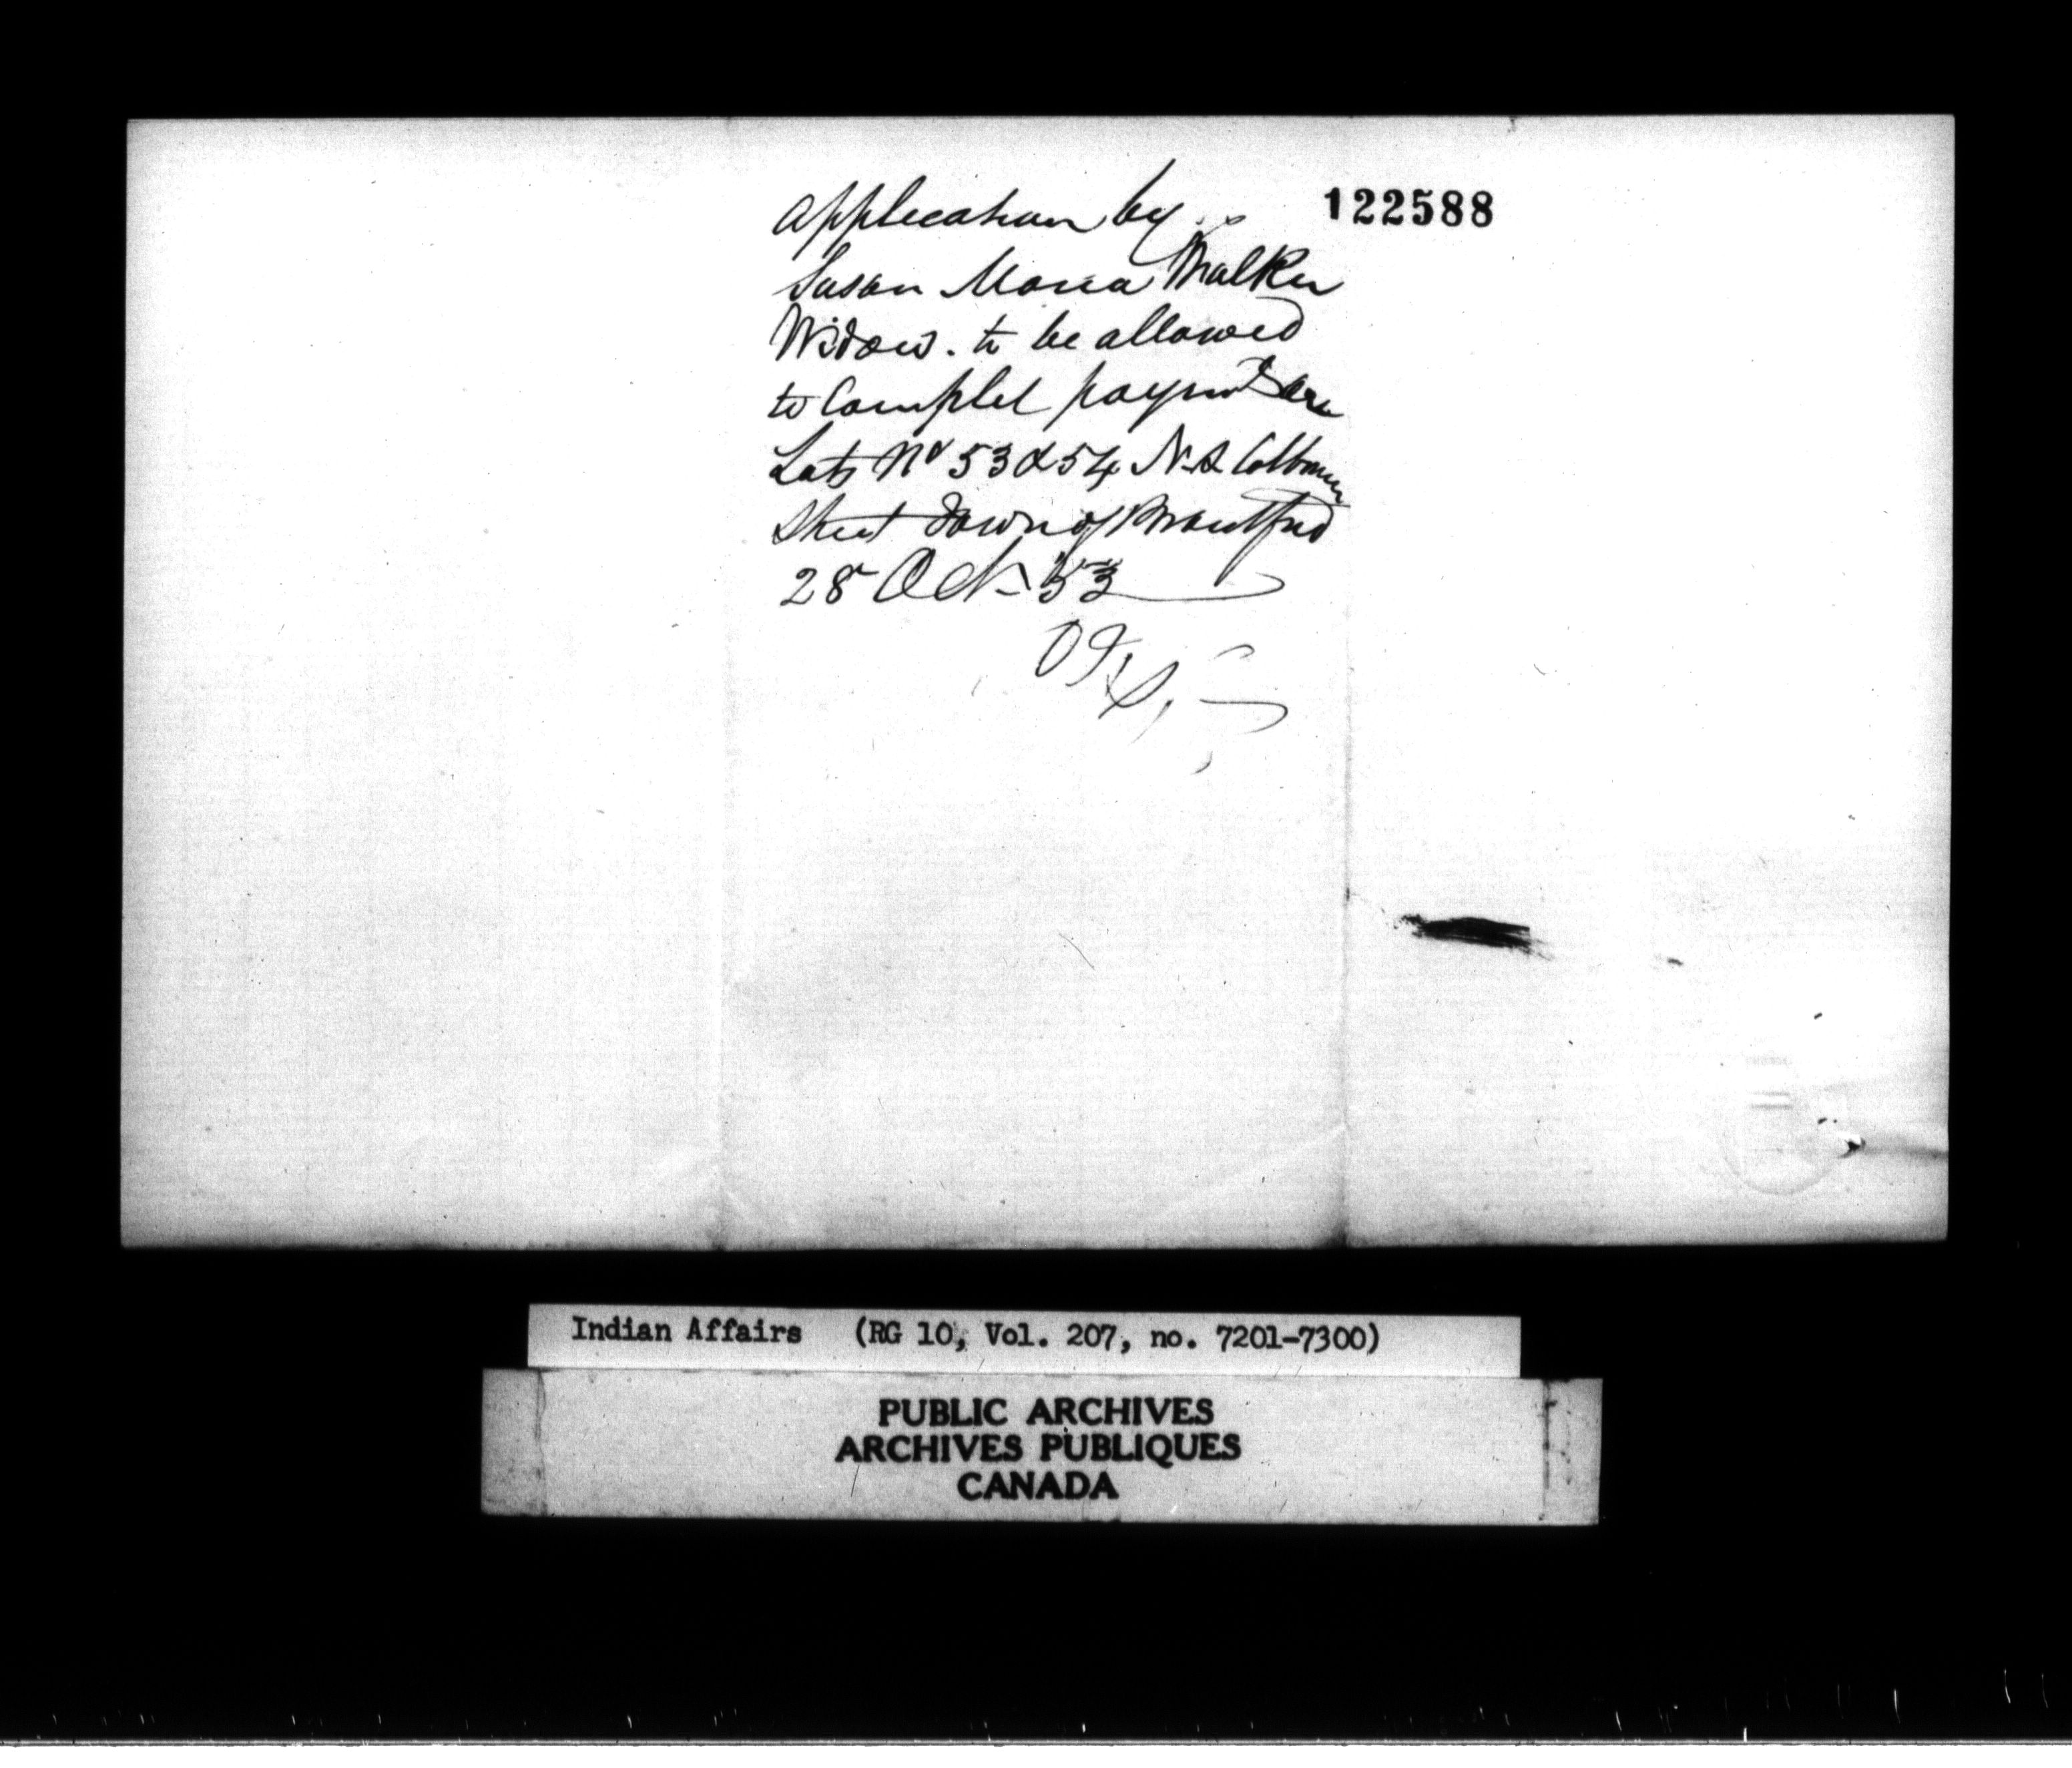 122588
Application by
Susan Maria Walker
Widow. to be allowed
to Complet paymt on
Lots No 53 & 54 N.S Colborne
Street Town of Brantford
28 Oct 53
Indian Affairs (RG 10, Vol. 207, no. 7201-7300)
PUBLIC ARCHIVES
ARCHIVES PUBLIQUES
CANADA